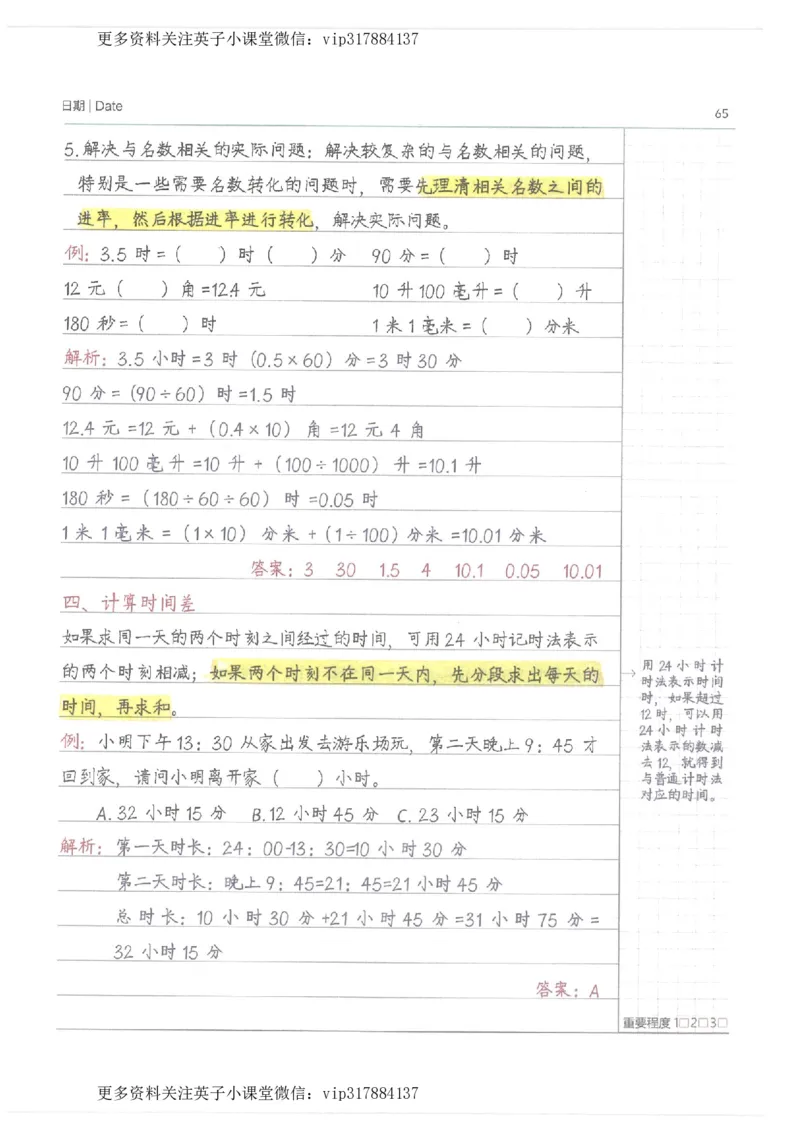 更多资料关注英子小课堂微信：vip317884137
日期 | Date
65
5.解决与名数相关的实际问题：解决较复杂的与名数相关的问题，
特别是一些需要名数转化的问题时，需要先理清相关名数之间的
进率，然后根据进率进行转化，解决实际问题。
例：3.5 时=（ ）时（ ）分 90 分=（ ）时
12 元（ ）角=12.4 元 10 升 100 毫升=（ ）升
180 秒=（ ）时 1 米 1 毫米=（ ）分米
解析：3.5 小时=3 时（0.5×60）分=3 时 30 分
90 分=（90÷60）时=1.5 时
12.4 元=12 元+（0.4×10）角=12 元 4 角
10 升 100 毫升=10 升+（100÷1000）升=10.1 升
180 秒=（180÷60÷60）时=0.05 时
1 米 1 毫米=（1×10）分米+（1÷100）分米=10.01 分米
答案：3 30 1.5 4 10.1 0.05 10.01
四、计算时间差
如果求同一天的两个时刻之间经过的时间，可用 24 小时记时法表示
的两个时刻相减；如果两个时刻不在同一天内，先分段求出每天的
时间，再求和。
用 24 小时计
时法表示时间
时，如果超过
12 时，可以用
24 小时计时
法表示的数减
去 12，就得到
与普通计时法
对应的时间。
例：小明下午 13：30 从家出发去游乐场玩，第二天晚上 9：45 才
回到家，请问小明离开家（ ）小时。
A.32 小时 15 分 B.12 小时 45 分 C.23 小时 15 分
解析：第一天时长：24：00-13：30=10 小时 30 分
第二天时长：晚上 9：45=21：45=21 小时 45 分
总时长：10 小时 30 分+21 小时 45 分=31 小时 75 分=
32 小时 15 分
答案：A
重要程度 1□2□3□
更多资料关注英子小课堂微信：vip317884137